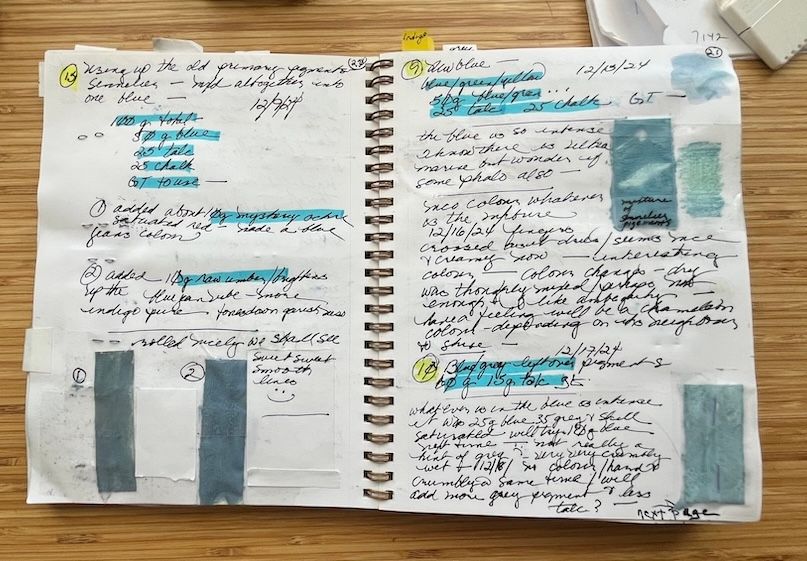 Using up the old primary pigments
Sennelier — mxd altogether into
one blue 12/7/24
100 g total
50g blue
25 talc
25 chalk
GT to use —
① added about 10g mystery ochre
saturated red — made a blue
jeans colour
② added 10g raw umber/brightens
up the blue jean vibe — more
indigo
rolled nicely we shall see
① ②
sweet sweet
smooth
lines
indigo
7142
9 New blue — 12/13/24 21
blue/green/yellow
50g blue/green ...
25 talc 25 chalk GT —
the blue is so intense
I know there is ultra
marine but wonder if
some phalo also —
nice colour whatever
is the mixture
12/16/24 fingers
crossed even dries/seems nice
& creamy now — interesting
colour — colour changes - dry
was thoroughly mixed/perhaps not
enough — I like ambiguity —
have a feeling will be a chameleon
colour - depending on its neighbour
mixture
of
Sennelier
pigments
12/17/24
10 Blue/grey leftover pigments
60g 15g talc
whatever is in the blue is intense
it was 25g blue 35 grey & still
saturated will try 10g blue
next time — not really a
hint of grey — very very crumbly
wet — 12/18/ nice colour/hard &
crumbly @ same time/will
add more grey pigment & less
talc? —
next page